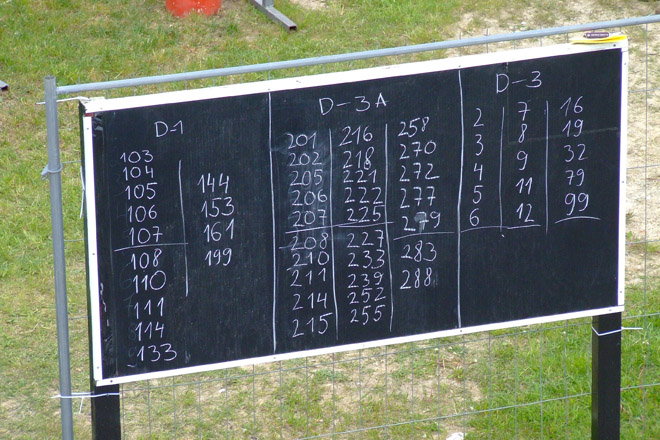 D-1
103
104
105
106
107
108
110
111
114
133
144
153
161
199
D-3A
201
202
205
206
207
208
210
211
214
215
216
218
221
222
225
227
233
239
252
255
258
270
272
277
279
283
288
D-3
2
3
4
5
6
7
8
9
11
12
16
19
32
79
99